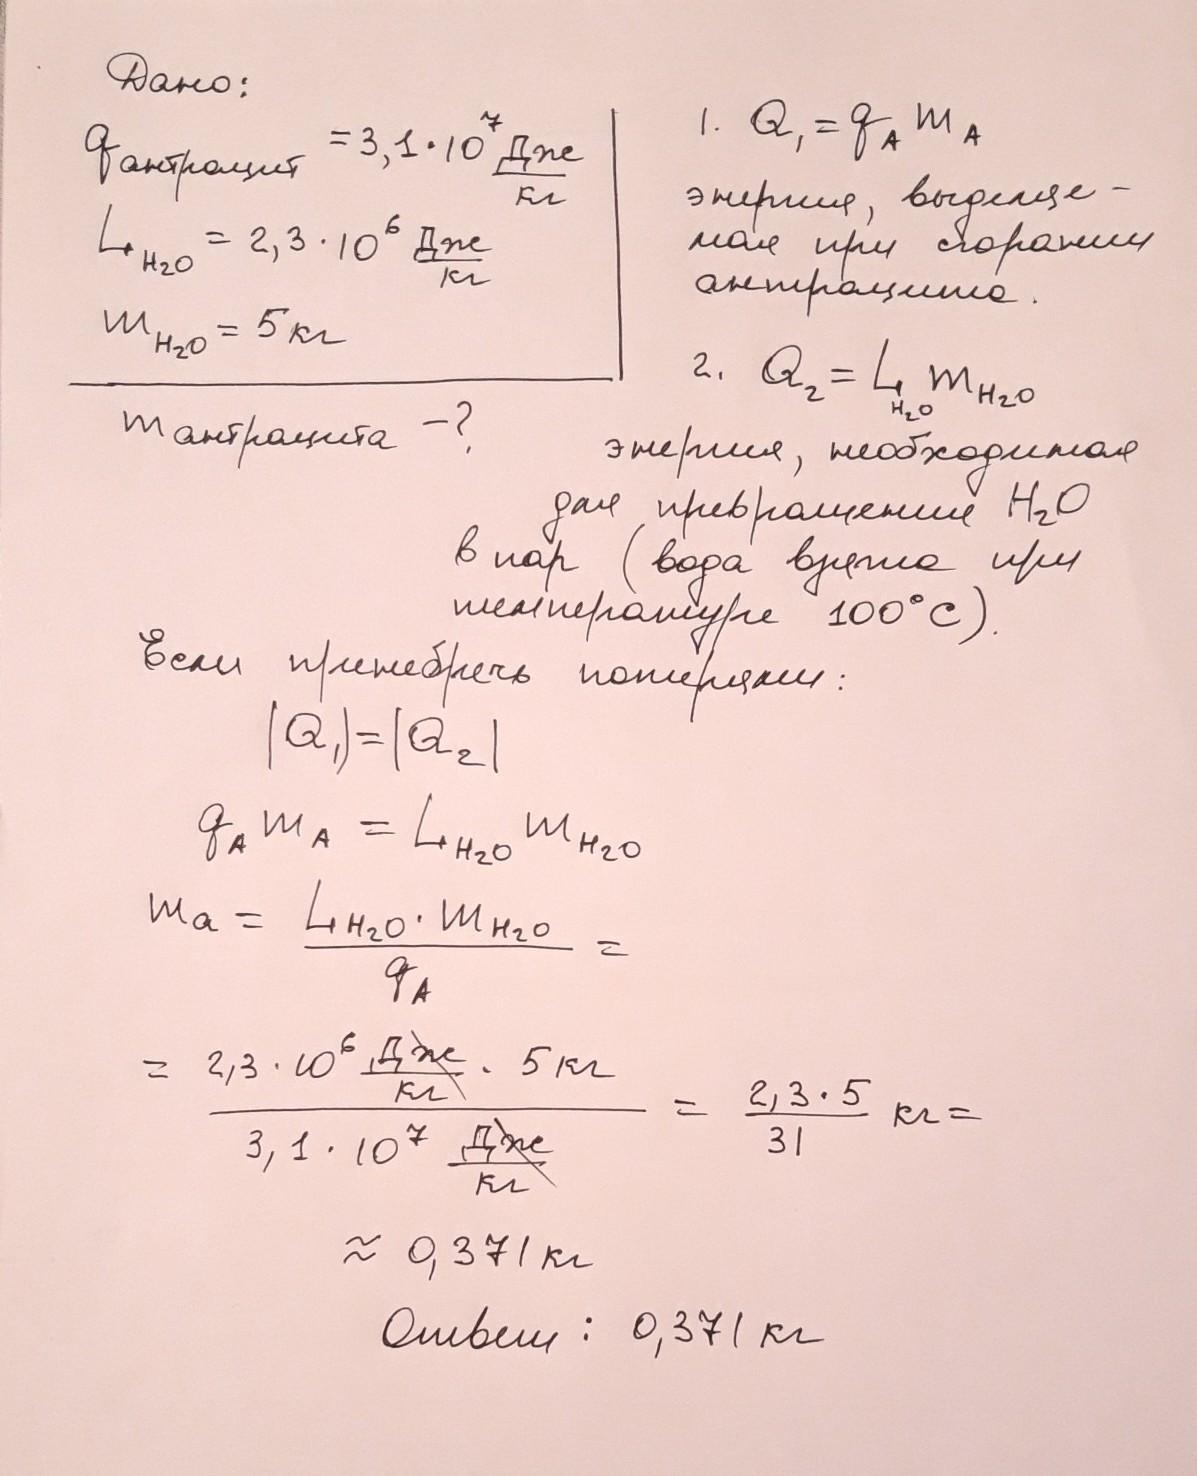 Дано:
qантрацит = 3,1·10⁷ Дж/кг
L_H₂O = 2,3·10⁶ Дж/кг
m_H₂O = 5 кг
mантрацита –?
1. Q₁ = q_A m_A
энергия, выделяе-
мая при сгорании
антрацита.
2. Q₂ = L_H₂O m_H₂O
энергия, необходимая
для превращения H₂O
в пар (вода взята при
температуре 100°C).
Если пренебречь потерями:
|Q₁| = |Q₂|
q_A m_A = L_H₂O m_H₂O
m_a = L_H₂O · m_H₂O / q_A =
= 2,3·10⁶ Дж/кг · 5 кг / 3,1·10⁷ Дж/кг = 2,3·5 / 31 кг =
≈ 0,371 кг
Ответ: 0,371 кг